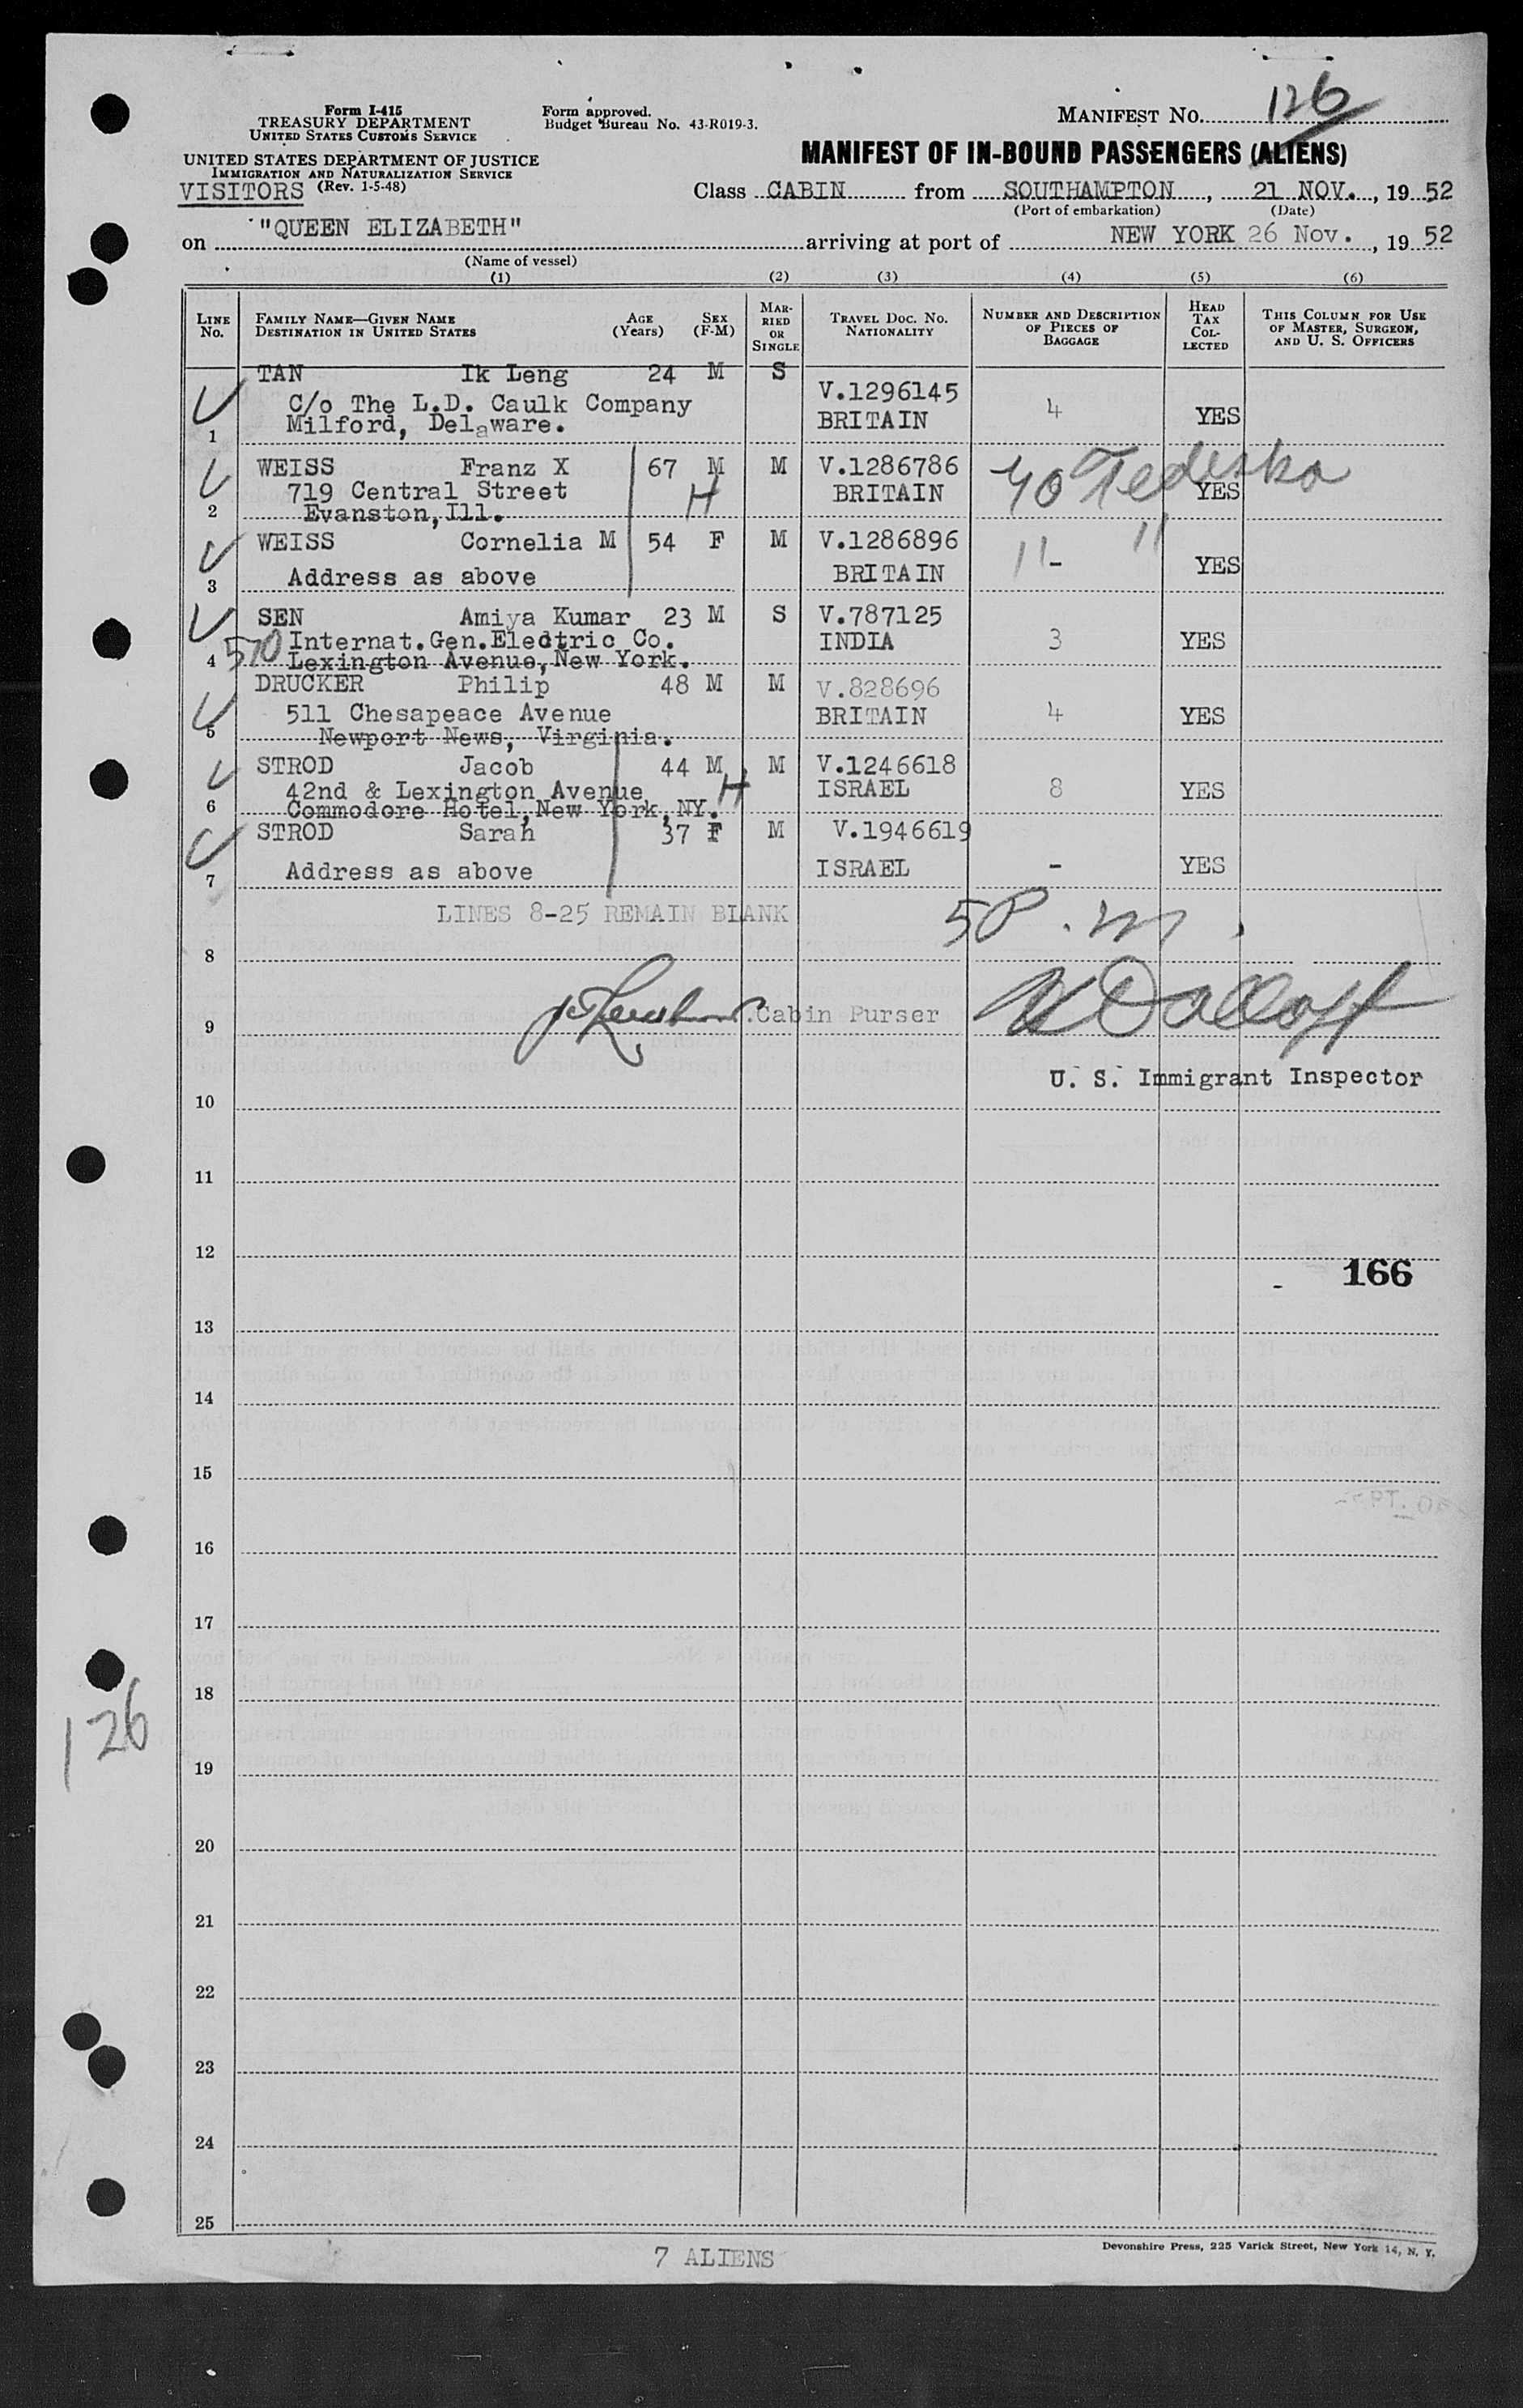 Form I-415
TREASURY DEPARTMENT
UNITED STATES CUSTOMS SERVICE
Form approved.
Budget Bureau No. 43-R019-3.
MANIFEST NO. 126
UNITED STATES DEPARTMENT OF JUSTICE
IMMIGRATION AND NATURALIZATION SERVICE
(Rev. 1-5-48)
VISITORS
MANIFEST OF IN-BOUND PASSENGERS (ALIENS)
Class CABIN from SOUTHAMPTON, 21 NOV., 1952
(Port of embarkation) (Date)
on "QUEEN ELIZABETH" arriving at port of NEW YORK 26 Nov., 1952
(Name of vessel)
(1) (2) (3) (4) (5) (6)
LINE No. FAMILY NAME—GIVEN NAME DESTINATION IN UNITED STATES AGE (Years) SEX (F-M) MARRIED OR SINGLE TRAVEL DOC. NO. NATIONALITY NUMBER AND DESCRIPTION OF PIECES OF BAGGAGE HEAD TAX COLLECTED THIS COLUMN FOR USE OF MASTER, SURGEON, AND U. S. OFFICERS
TAN Ik Leng 24 M S V.1296145
C/o The L.D. Caulk Company
1 Milford, Delaware. BRITAIN 4 YES
WEISS Franz X 67 M M V.1286786
719 Central Street H BRITAIN 40 Tedesko YES
2 Evanston, Ill.
WEISS Cornelia M 54 F M V.1286896 " "
3 Address as above BRITAIN - YES
SEN Amiya Kumar 23 M S V.787125
570 Internat.Gen.Electric Co. INDIA 3 YES
4 Lexington Avenue, New York.
DRUCKER Philip 48 M M V.828696
511 Chesapeace Avenue BRITAIN 4 YES
5 Newport News, Virginia.
STROD Jacob 44 M M V.1246618
42nd & Lexington Avenue H ISRAEL 8 YES
6 Commodore Hotel, New York, NY.
STROD Sarah 37 F M V.1946619
7 Address as above ISRAEL - YES
LINES 8-25 REMAIN BLANK 5 P.m.
8
9 Cabin Purser
U. S. Immigrant Inspector
10
11
12
166
13
14
15
16
17
18
126
19
20
21
22
23
24
25
7 ALIENS
Devonshire Press, 225 Varick Street, New York 14, N. Y.